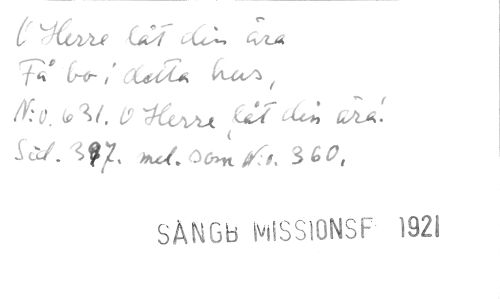 O Herre låt din ära
Få bo i detta hus,
N:o. 631. O Herre, låt din ära!
Sid. 397. mel. som N:o. 360.
SÅNGB MISSIONSF 1921